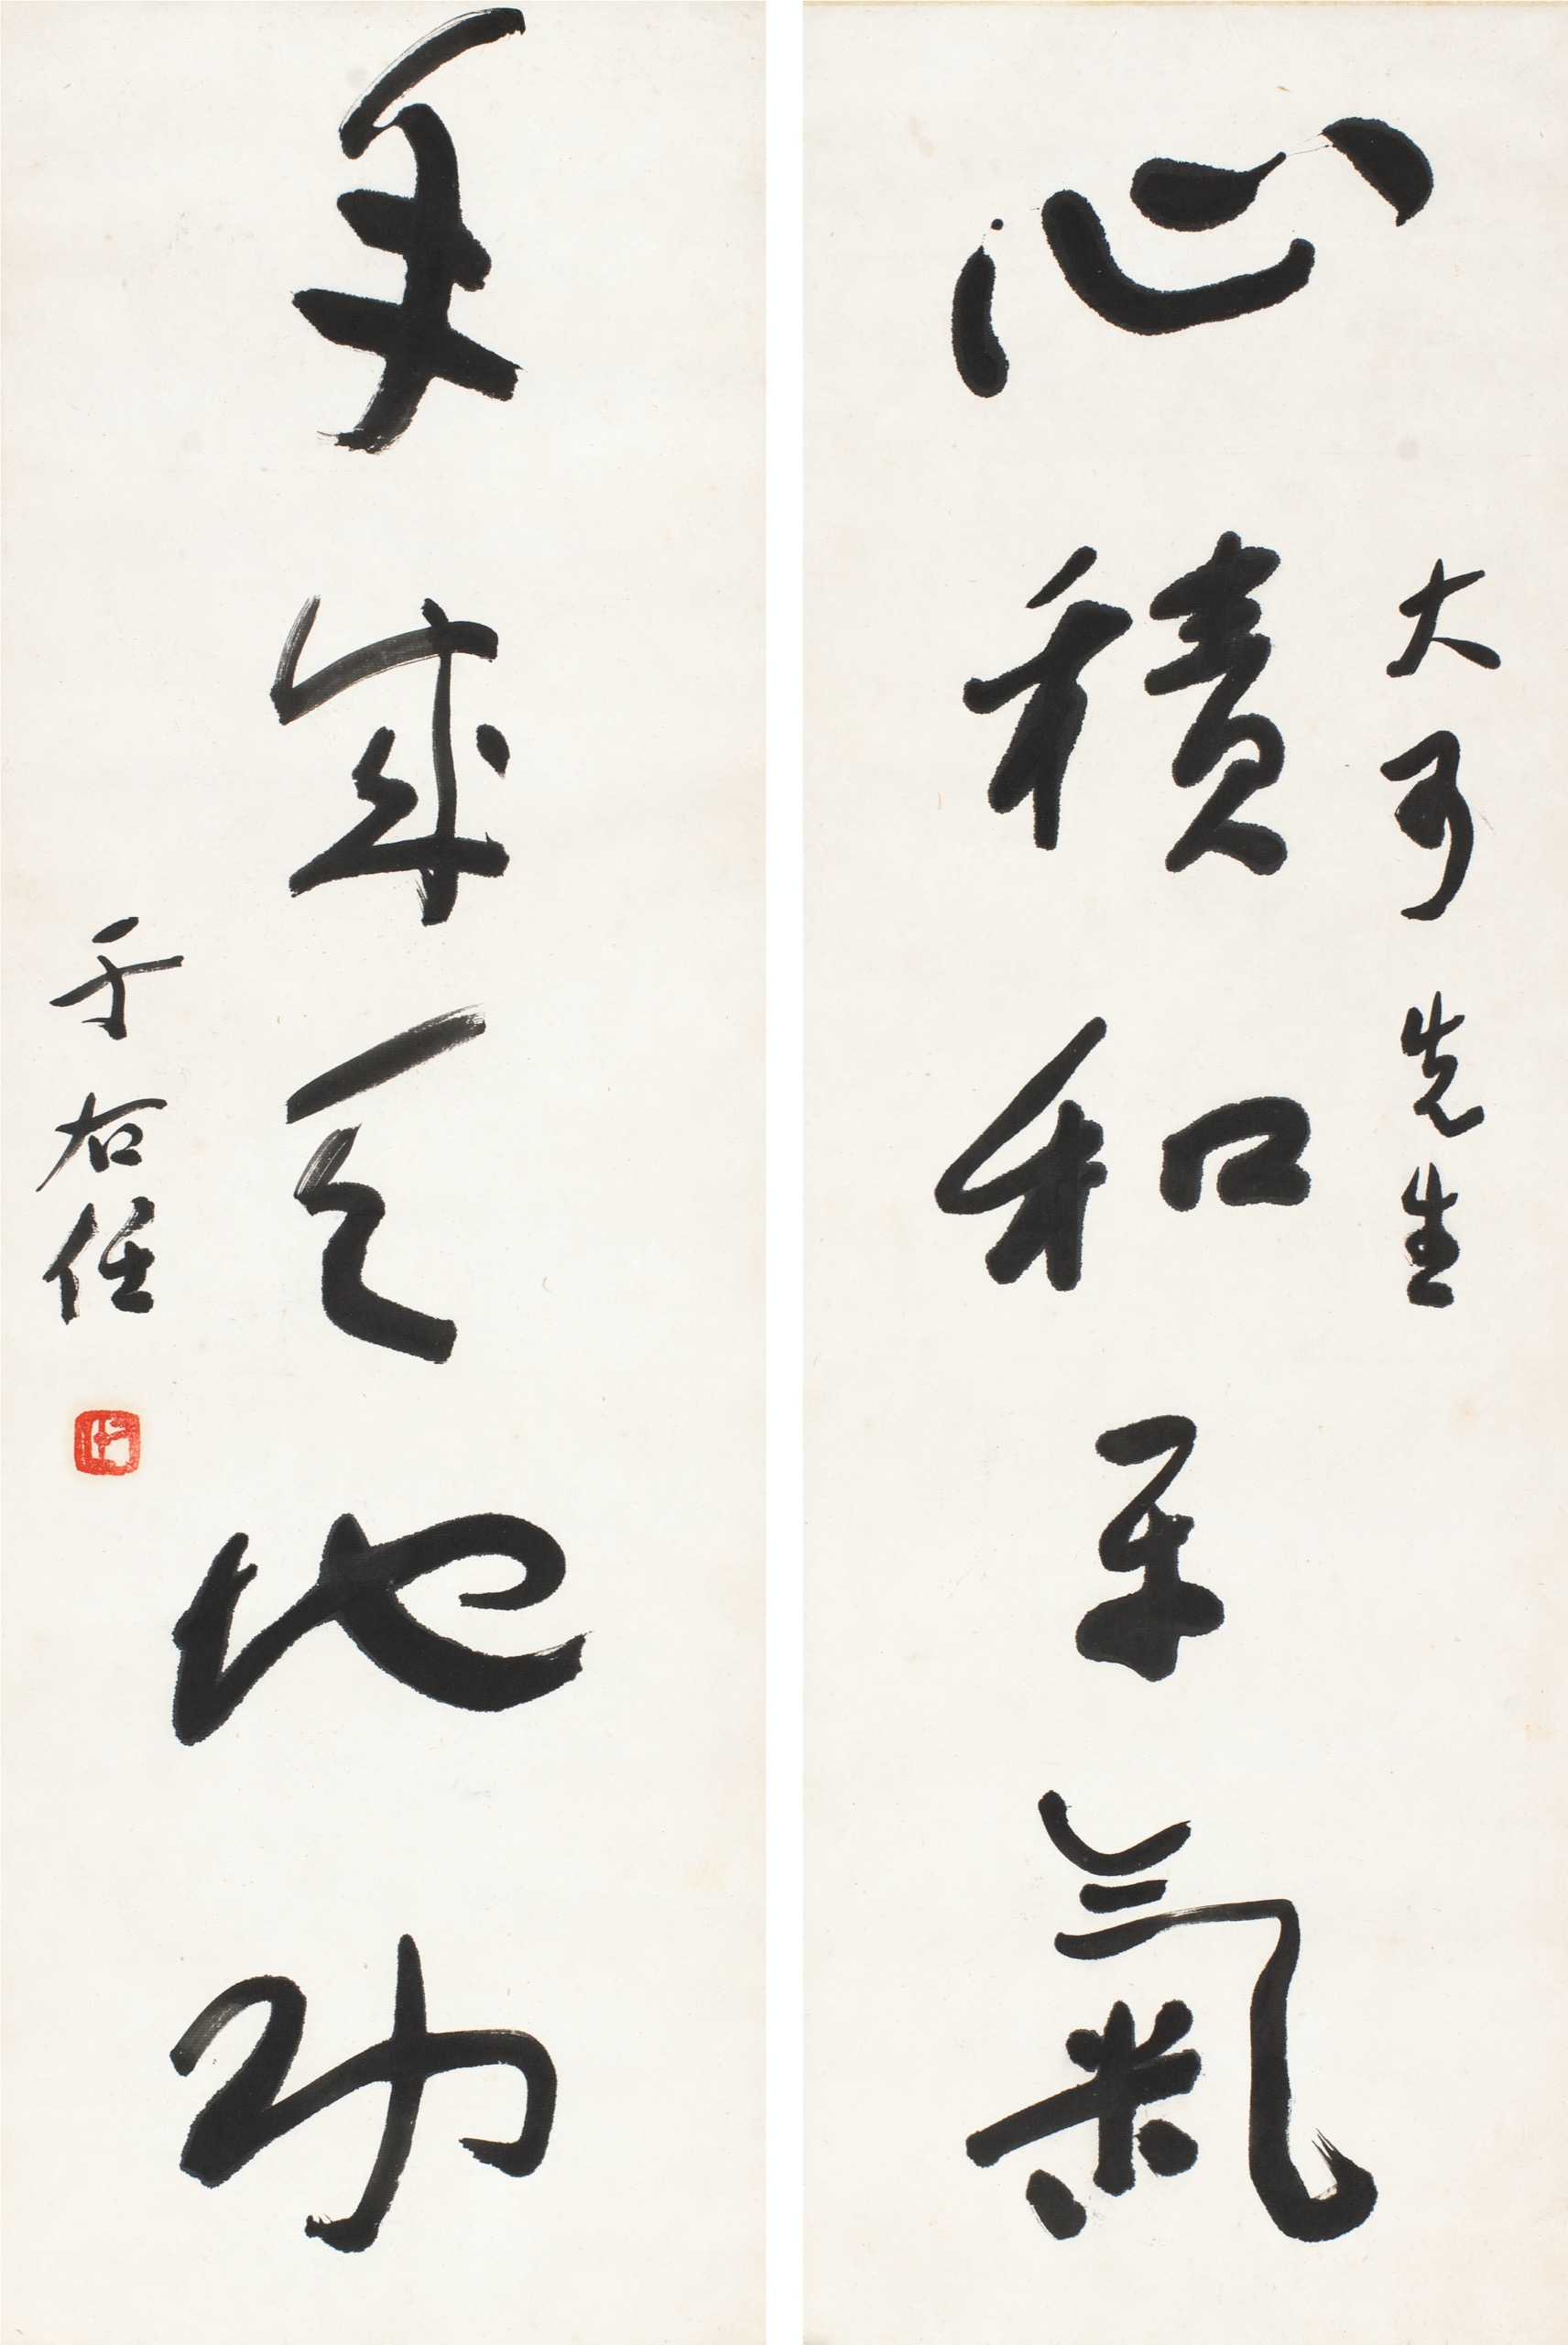 大可先生
心積和平氣
手成天地功
于右任